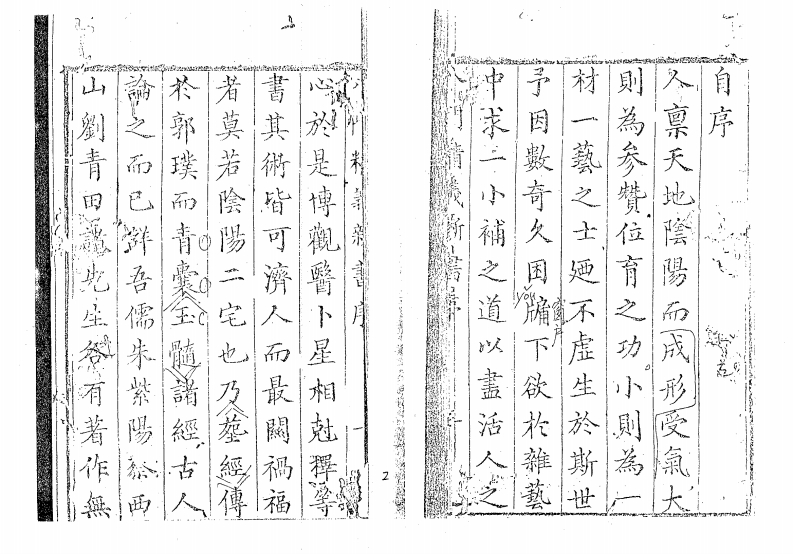 自序
人稟天地陰陽而成形受氣大
則為參贊位育之功小則為一
材一藝之士廼不虛生於斯世
予因數奇久困牖下欲於雜藝
yǒu
窗户
中求一小補之道以盡活人之
心於是博觀醫卜星相尅擇等
書其術皆可濟人而最關禍福
者莫若陰陽二宅也乃塟經傳
於郭璞而青囊玉髓諸經古人
論之而已鮮吾儒朱紫陽蔡西
山劉青田諸先生各有著作無
2